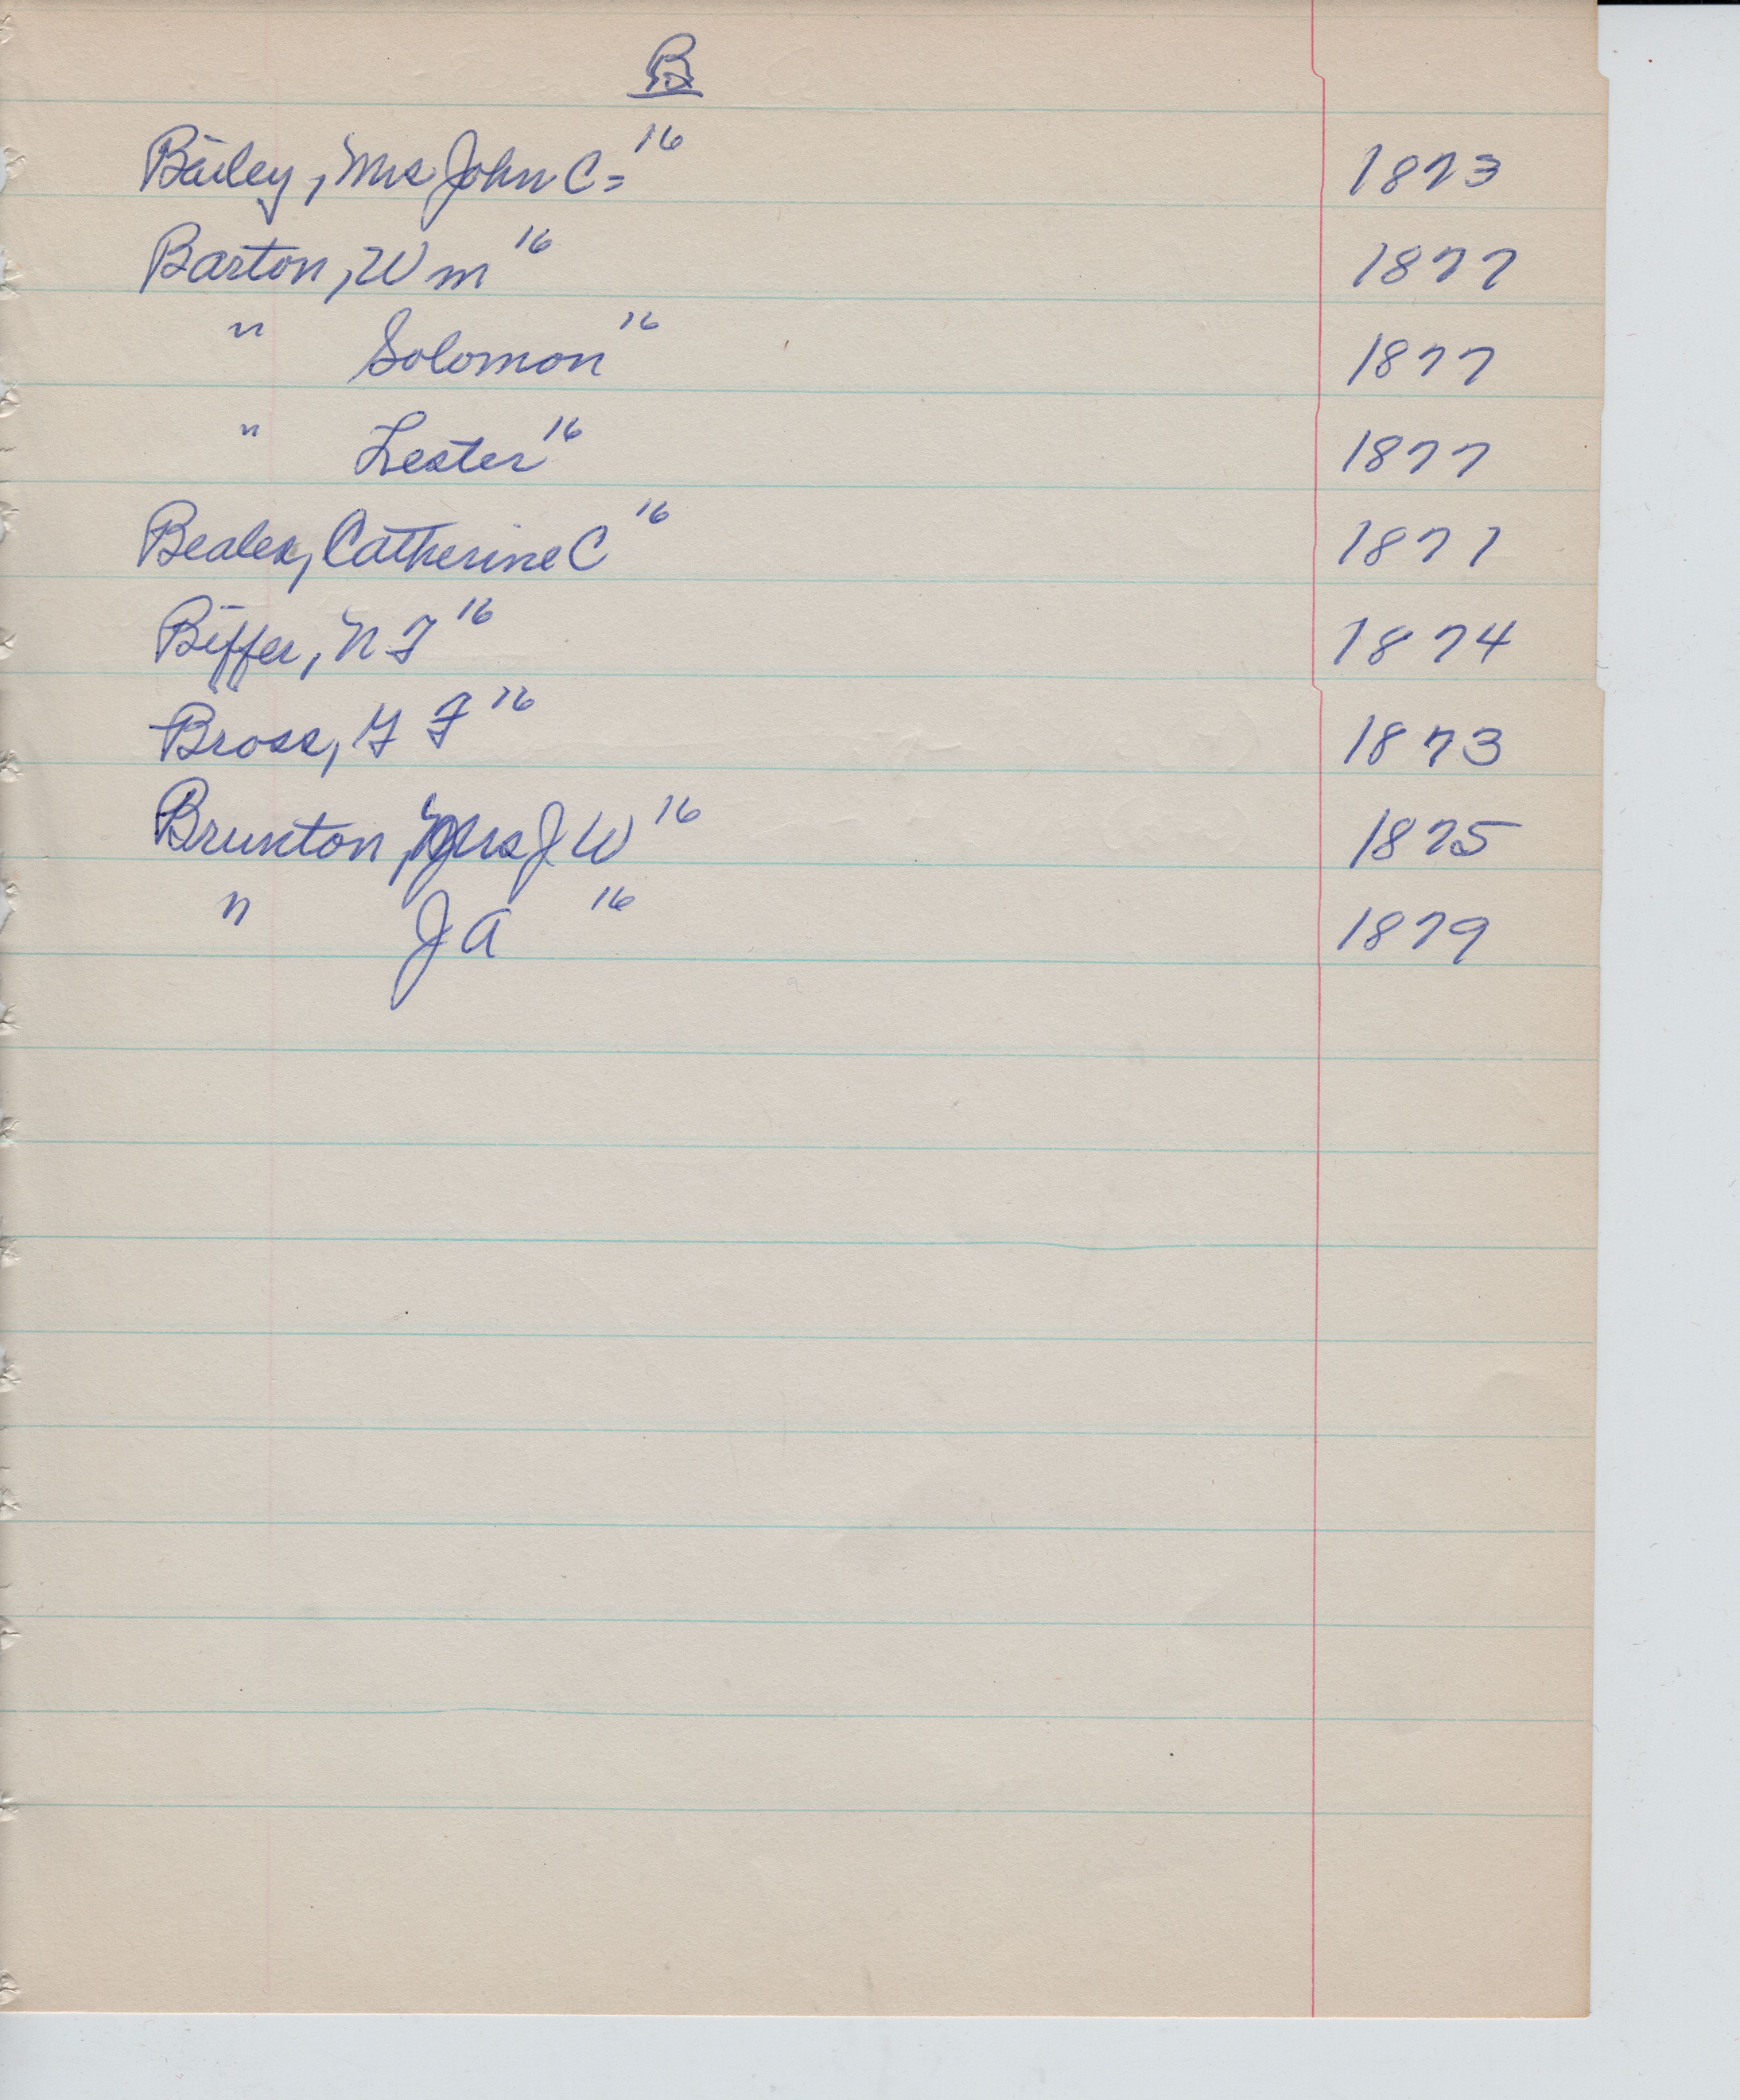 B
Bailey, Mrs John C= 16 1873
Barton, Wm 16 1877
" Solomon 16 1877
" Lester 16 1877
Beales, Catherine C 16 1877
Biffer, N F 16 1874
Bross, G F 16 1873
Brunton, Mrs J W 16 1875
" J A 16 1879